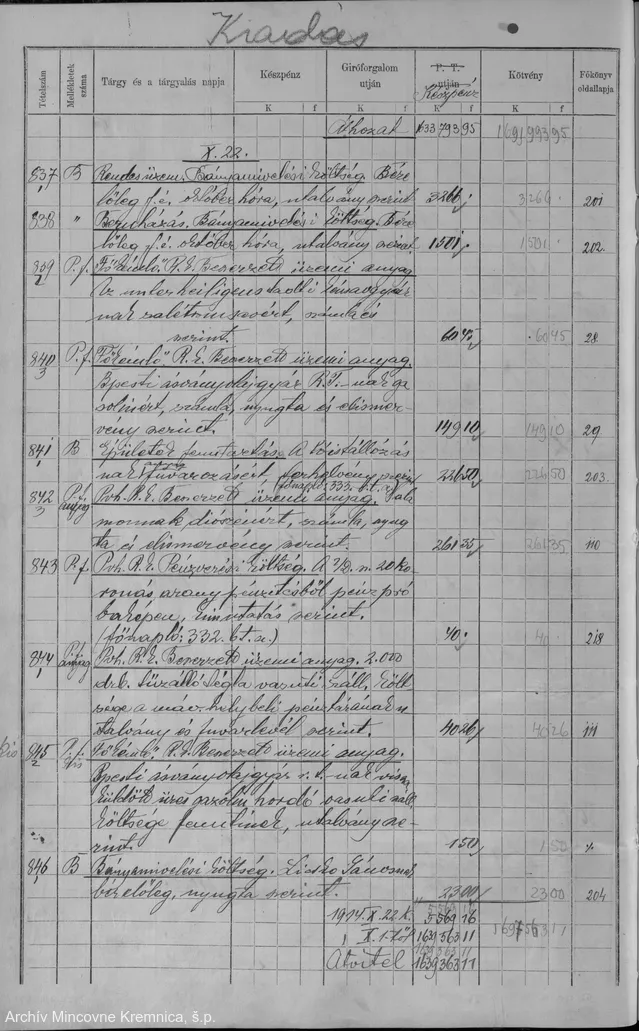 Kiadás
Tételszám Mellékletek száma Tárgy és a tárgyalás napja Készpénz Giróforgalom utján P. T. utján Készpénz Kötvény Főkönyv oldallapja
K f K f K f
Áthozat 1633793 95
X. 22.
837 B Rendes üzem. Bányamivelési költség. Bér
előleg f. é. október hóra, utalvány szerint 3266 3266 201
838 " Beruházás. Bányamivelési költség. Bér
előleg f. é. október hóra, utalvány szerint 1501 1501 202
839 P. f. "Főkémlő" R. E. Beszerzett üzemi anyag.
Az unterheiligenstadti
szerint. 60 45 60 45 28
840 P. f. "Főkémlő" R. E. Beszerzett üzemi anyag.
Bpesti ásványolajgyár R.T.-nak ga
solinért, számla, nyugta és elismer-
vény szerint. 149 10 149 10 29
841 B Épületek fenntartása. A
nak fuvarozásért, szerint
főnapló: 333. 226 50 226 50 203
842 P. f. anyag Pvh. R. E. Beszerzett üzemi anyag. Sala
monnak diószénért, számla, nyug
ta és elismervény szerint. 261 35 261 35 110
843 P. f. Pvh. R. E. Pénzverési költség. A 20 ko
ronás arany pénzekből pénzpró
baképen, kimutatás szerint.
(főnapló: 332. b. t. a.) 40 40 218
844 P. f. anyag Pvh. R. E. Beszerzett üzemi anyag. 2.000
drb. tűzálló tégla vasúti száll. költ
sége a máv. helybeli pénztárának u
talvány és fuvarlevél szerint. 40 26 40 26 111
845 P. f. "Főkémlő" R. E. Beszerzett üzemi anyag.
Bpesti ásványolajgyár r. t.-nak vissza
küldött üres gazolin hordó vasuti száll.
költsége utalvány sze-
rint. 1 50 1 50
846 B Bányamivelési költség. Liszko Jánosnak
bérelőleg, nyugta szerint. 23 00 23 00 204
1914. X. 22. k. 5569 16
" X. 1-től 1639363 11
Átvitel 1639363 11
Archív Mincovne Kremnica, š.p.